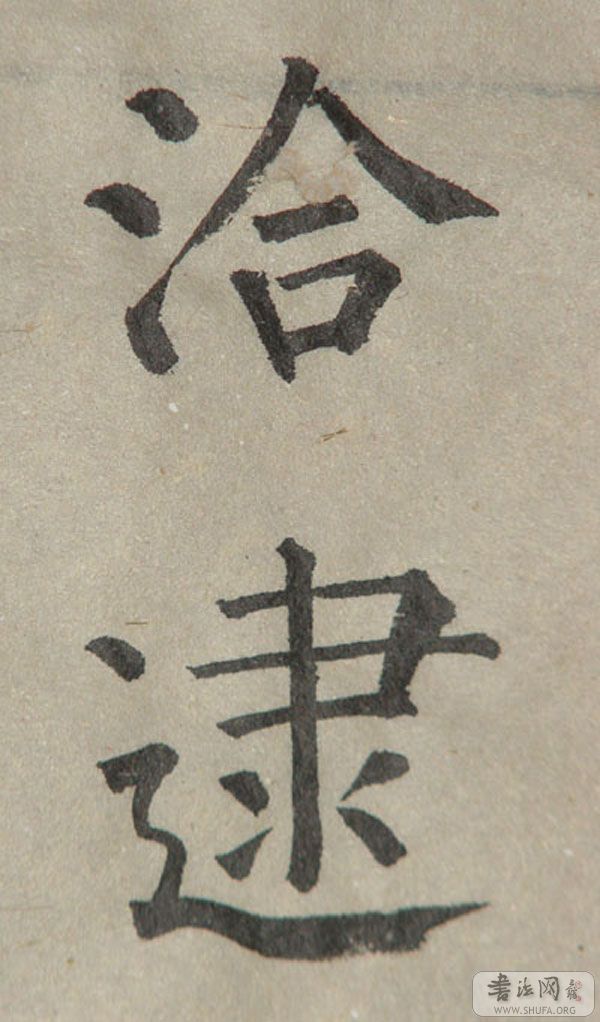 洽
逮
书法网
WWW.SHUFA.ORG